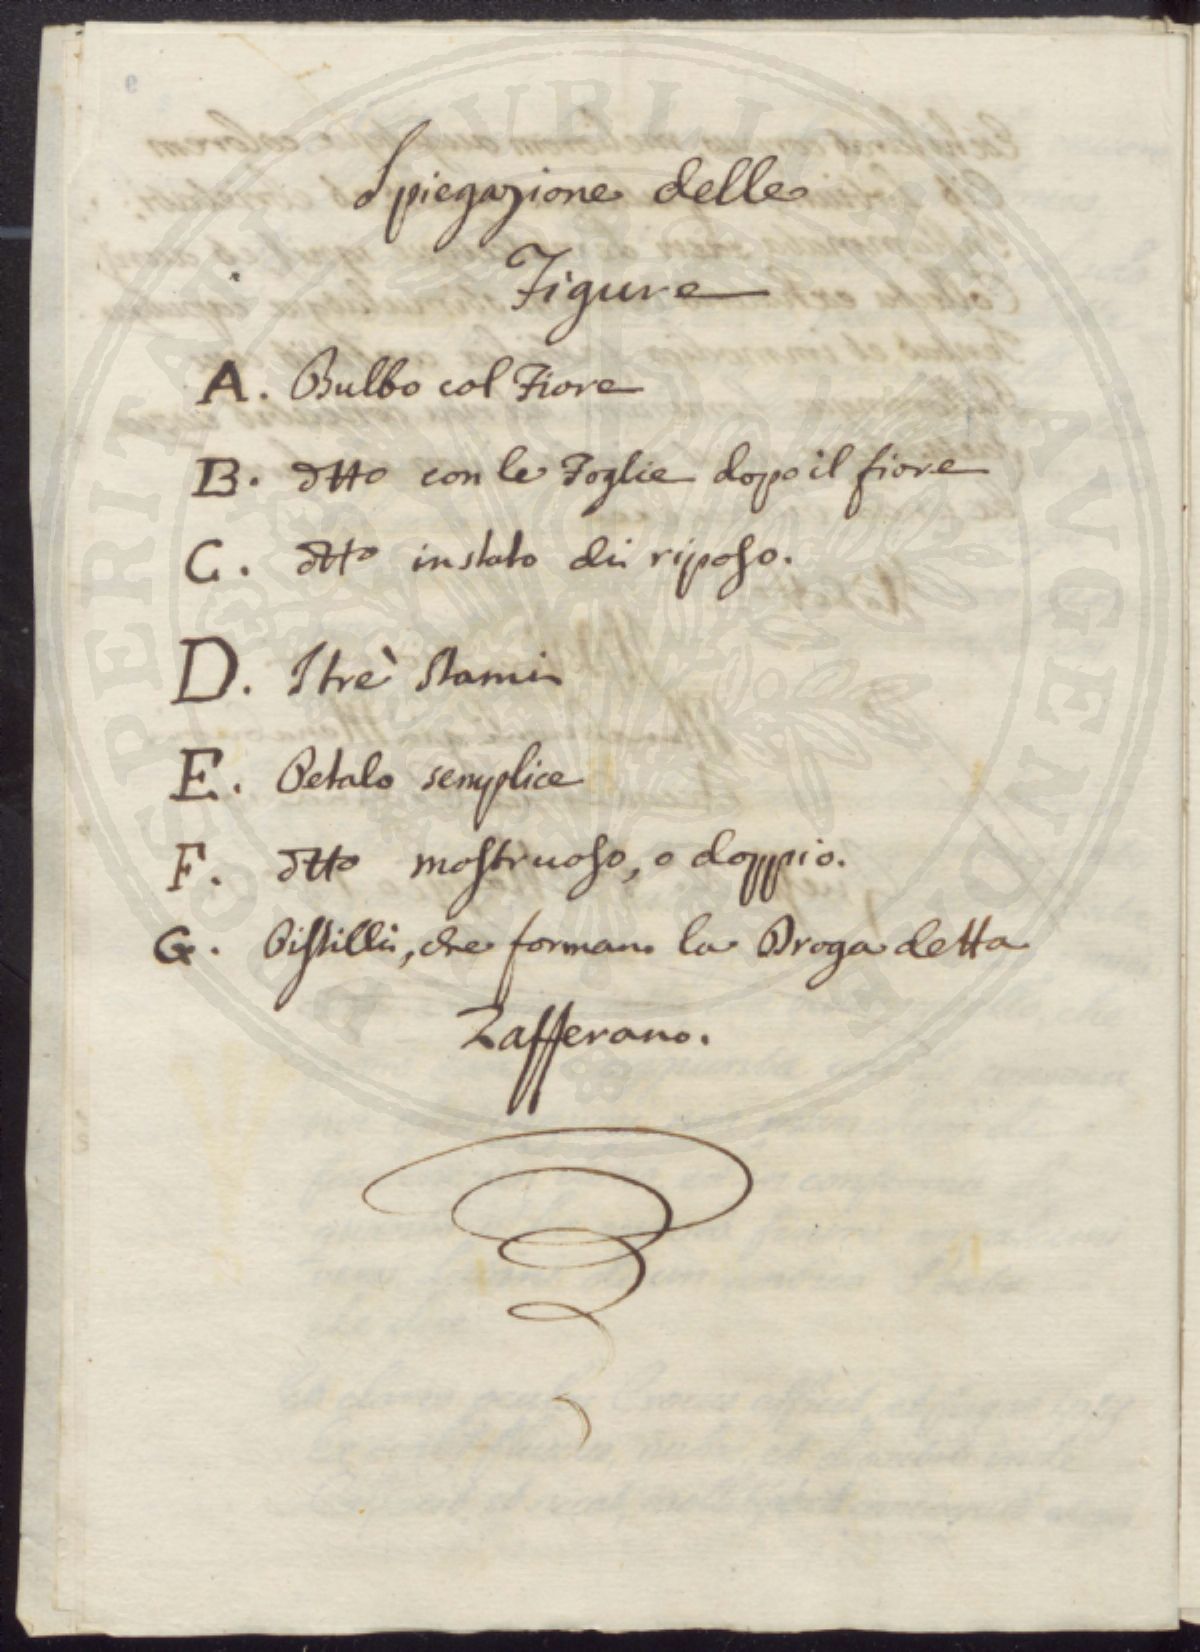 Spiegazione delle
Figure
A. Bulbo col Fiore
B. dtto con le Foglie dopo il fiore
C. dtto in stato di riposo.
D. I trè stami
E. Petalo semplice
F. dtto mostruoso, o doppio.
G. Pistilli, che formano la Droga detta
Zafferano.